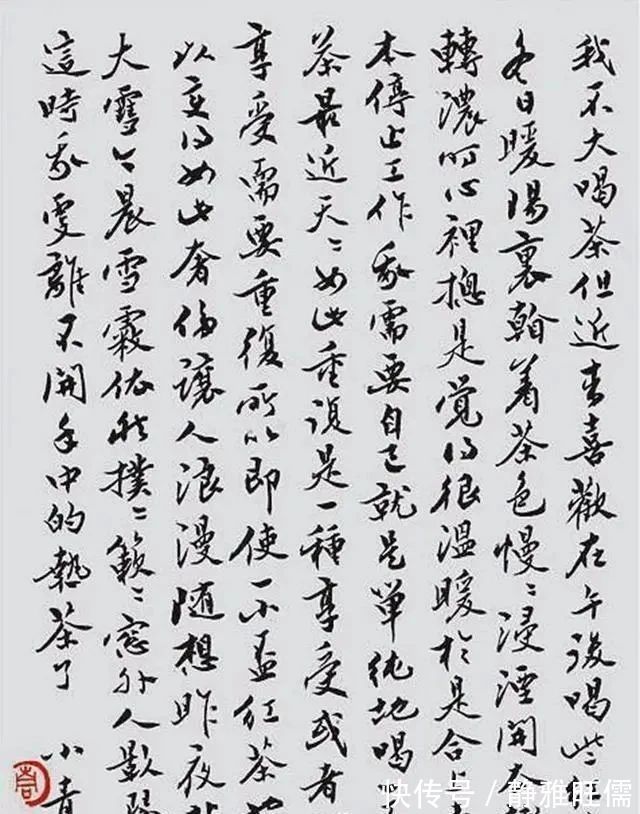 我不大喝茶但近来喜歡在午後喝些
冬日暖陽裏翰着茶色慢〻浸湮開
轉濃時心裡揔是覺得很溫暖於是合上
本停止工作我需要自己就是單純地喝
茶最近天〻如此重復是一種享受或者
享受需要重復所以即使一小盃红茶也
以变得如此奢侈讓人浪漫随想昨夜
大雪今晨雪霰依然撲〻簌〻窓外人影
這時我更離不開手中的熱茶了 小青
快传号/静雅旺儒